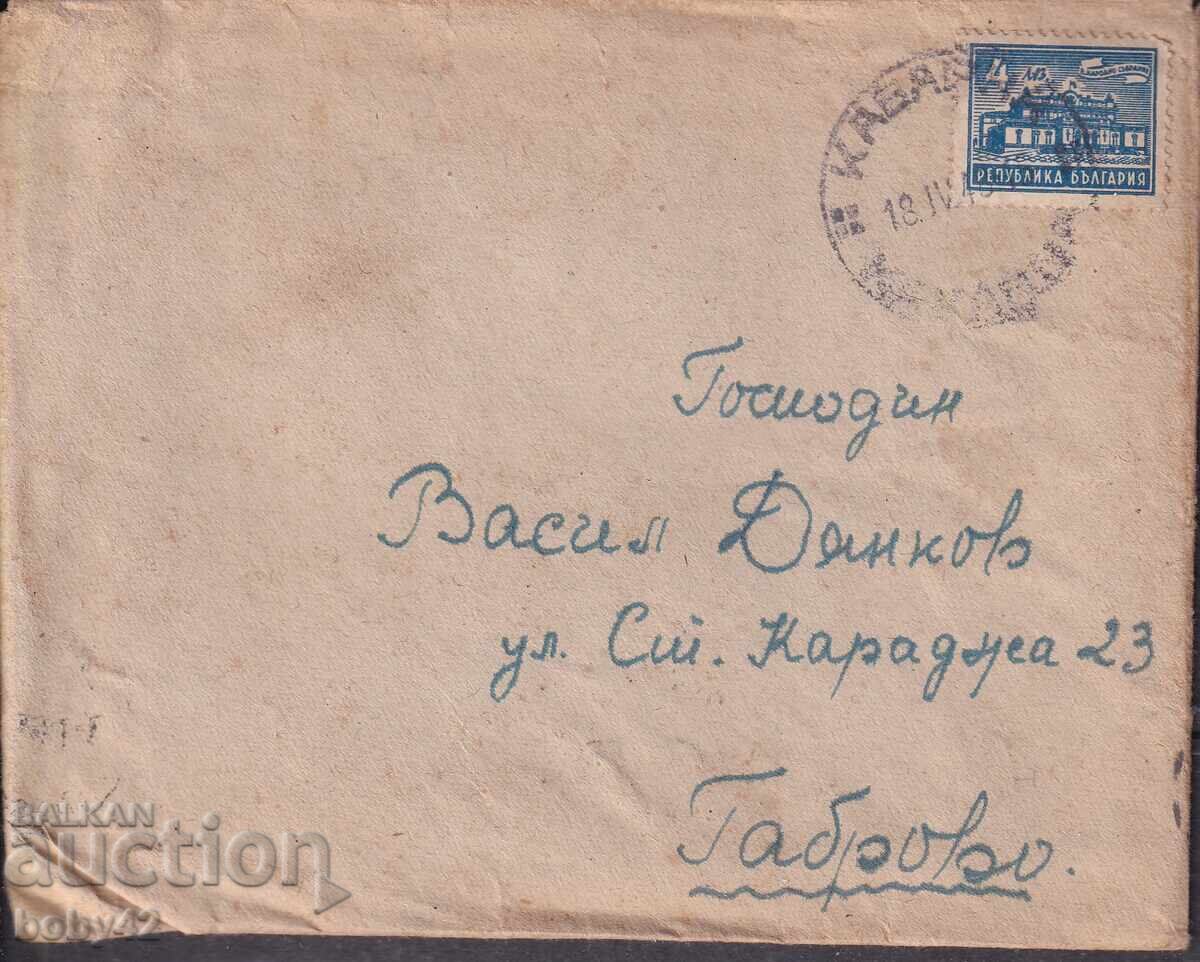 4 лв.
НАРОДНО СЪБРАНИЕ
РЕПУБЛИКА БЪЛГАРИЯ
18.IV.
Господин
Васил Дянков
ул. Ст. Караджа 23
Габрово.
BALKAN
auction
boby42